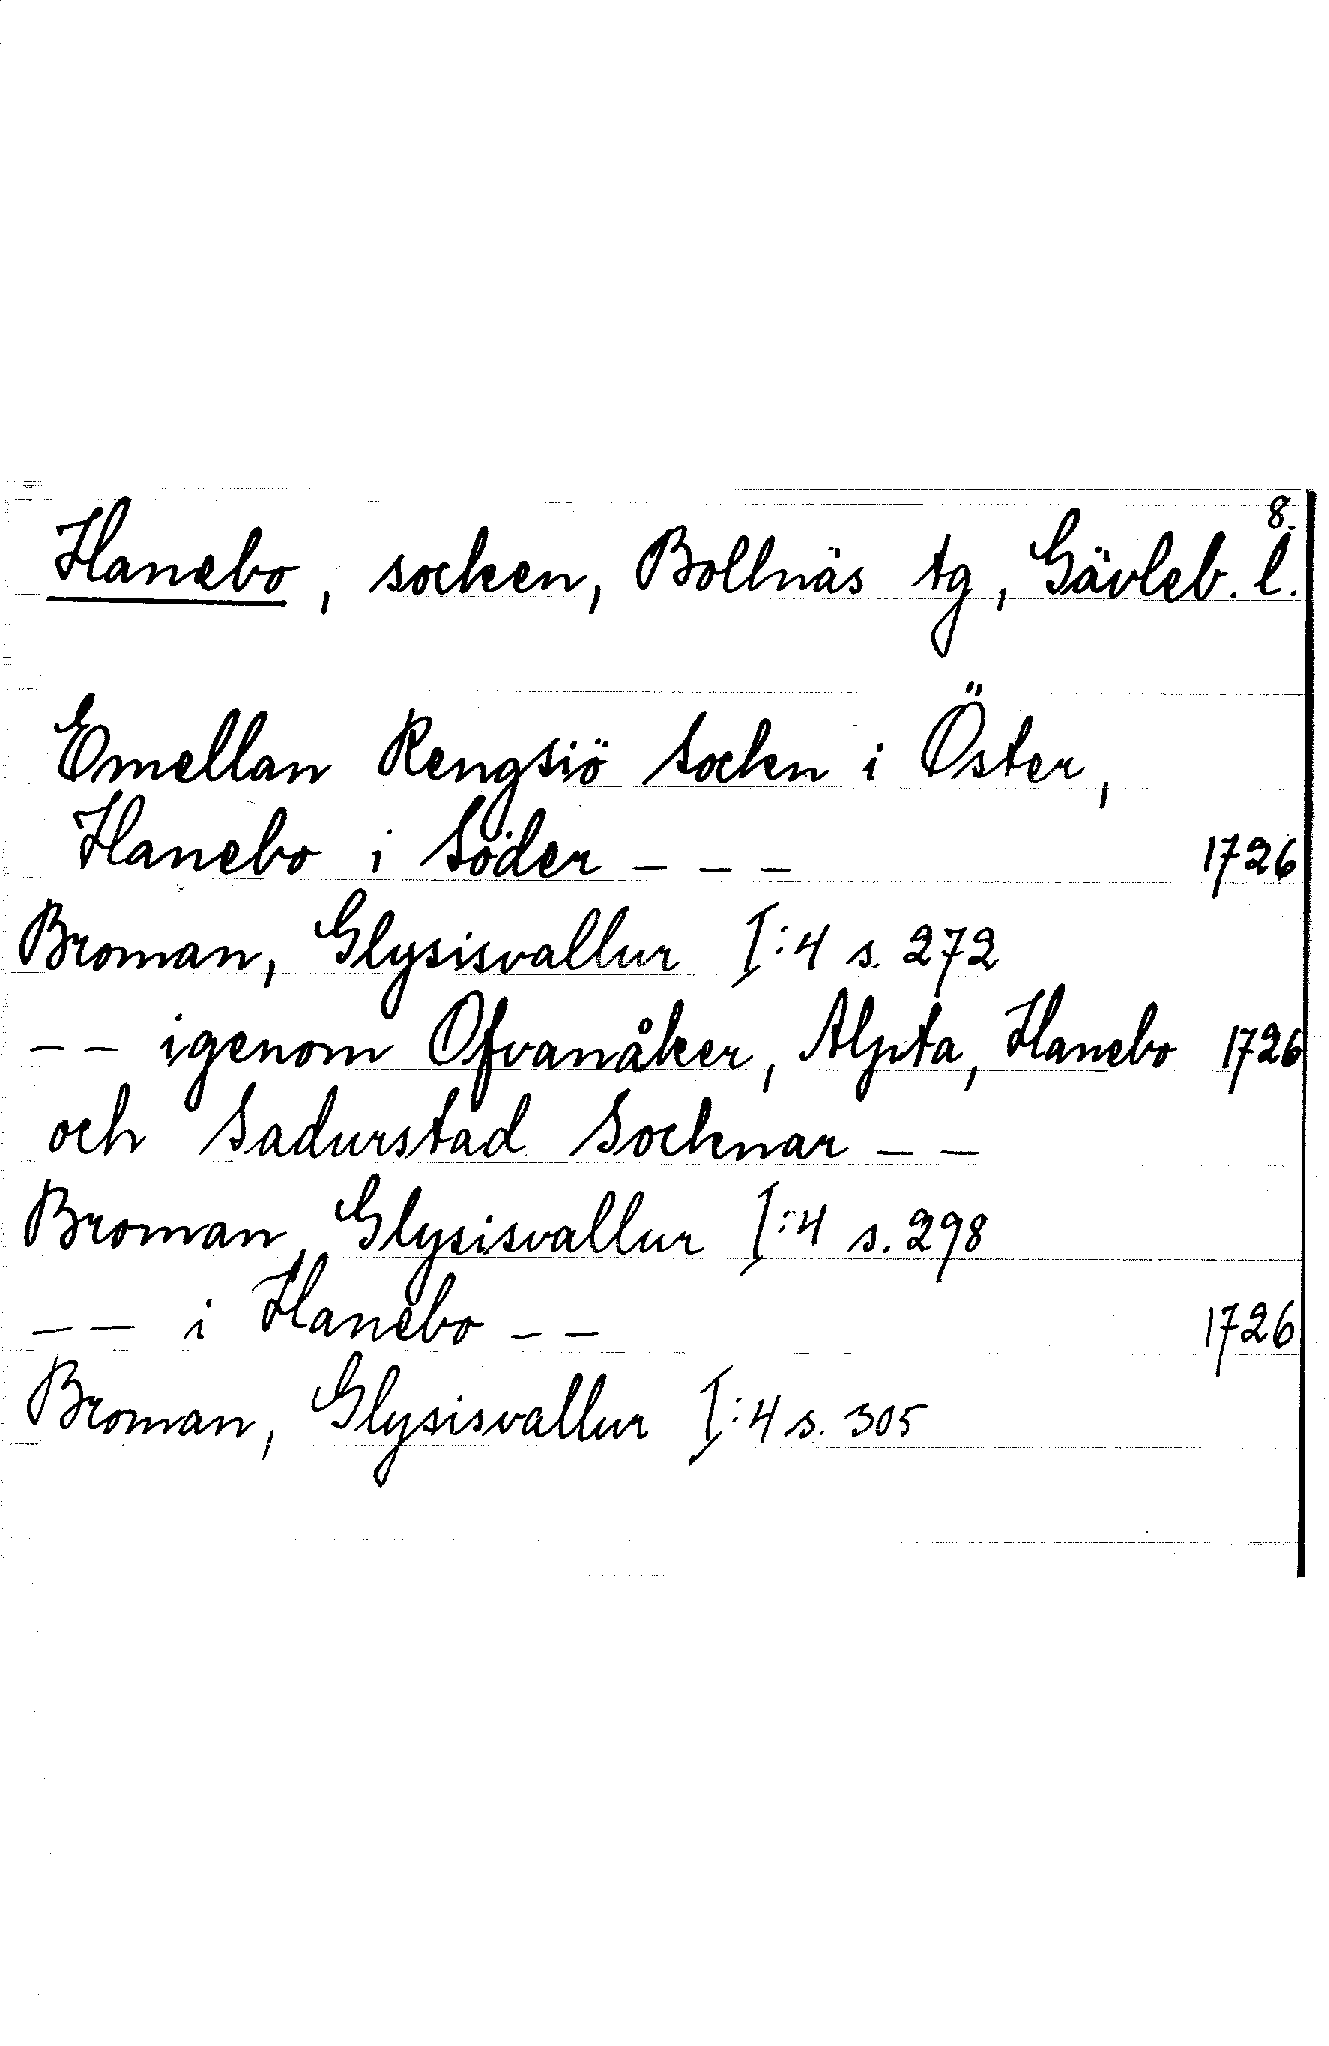 8.
Hanebo, socken, Bollnäs tg, Gävleb. l.
Emellan Rengsiö Sockn i Öster,
Hanebo i Söder - - - 1726
Broman, Glysisvallur I:4 s. 272
- - igenom Ofvanåker, Alpta, Hanebo 1726
och Sadurstad Socknar - -
Broman, Glysisvallur I:4 s. 298
- - i Hanebo - - 1726
Broman, Glysisvallur I:4 s. 305